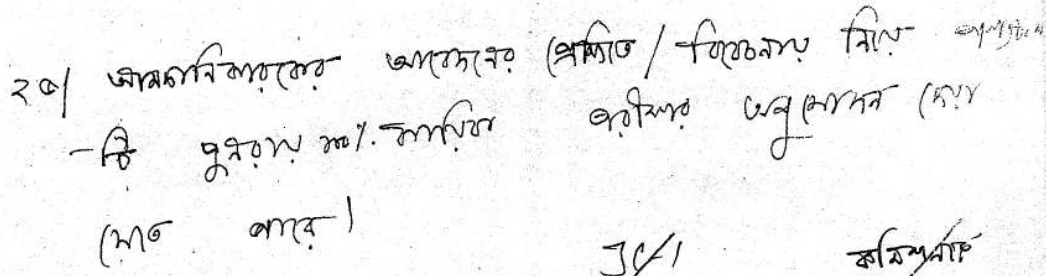 ২৩/ আমদানিকারকের আবেদনের প্রেক্ষিতে / বিবেচনায় নিয়ে
-টি পুনরায় ১০০% কায়িক পরীক্ষার অনুমোদন দেয়া
যেতে পারে।
JC/1 কমিশনার